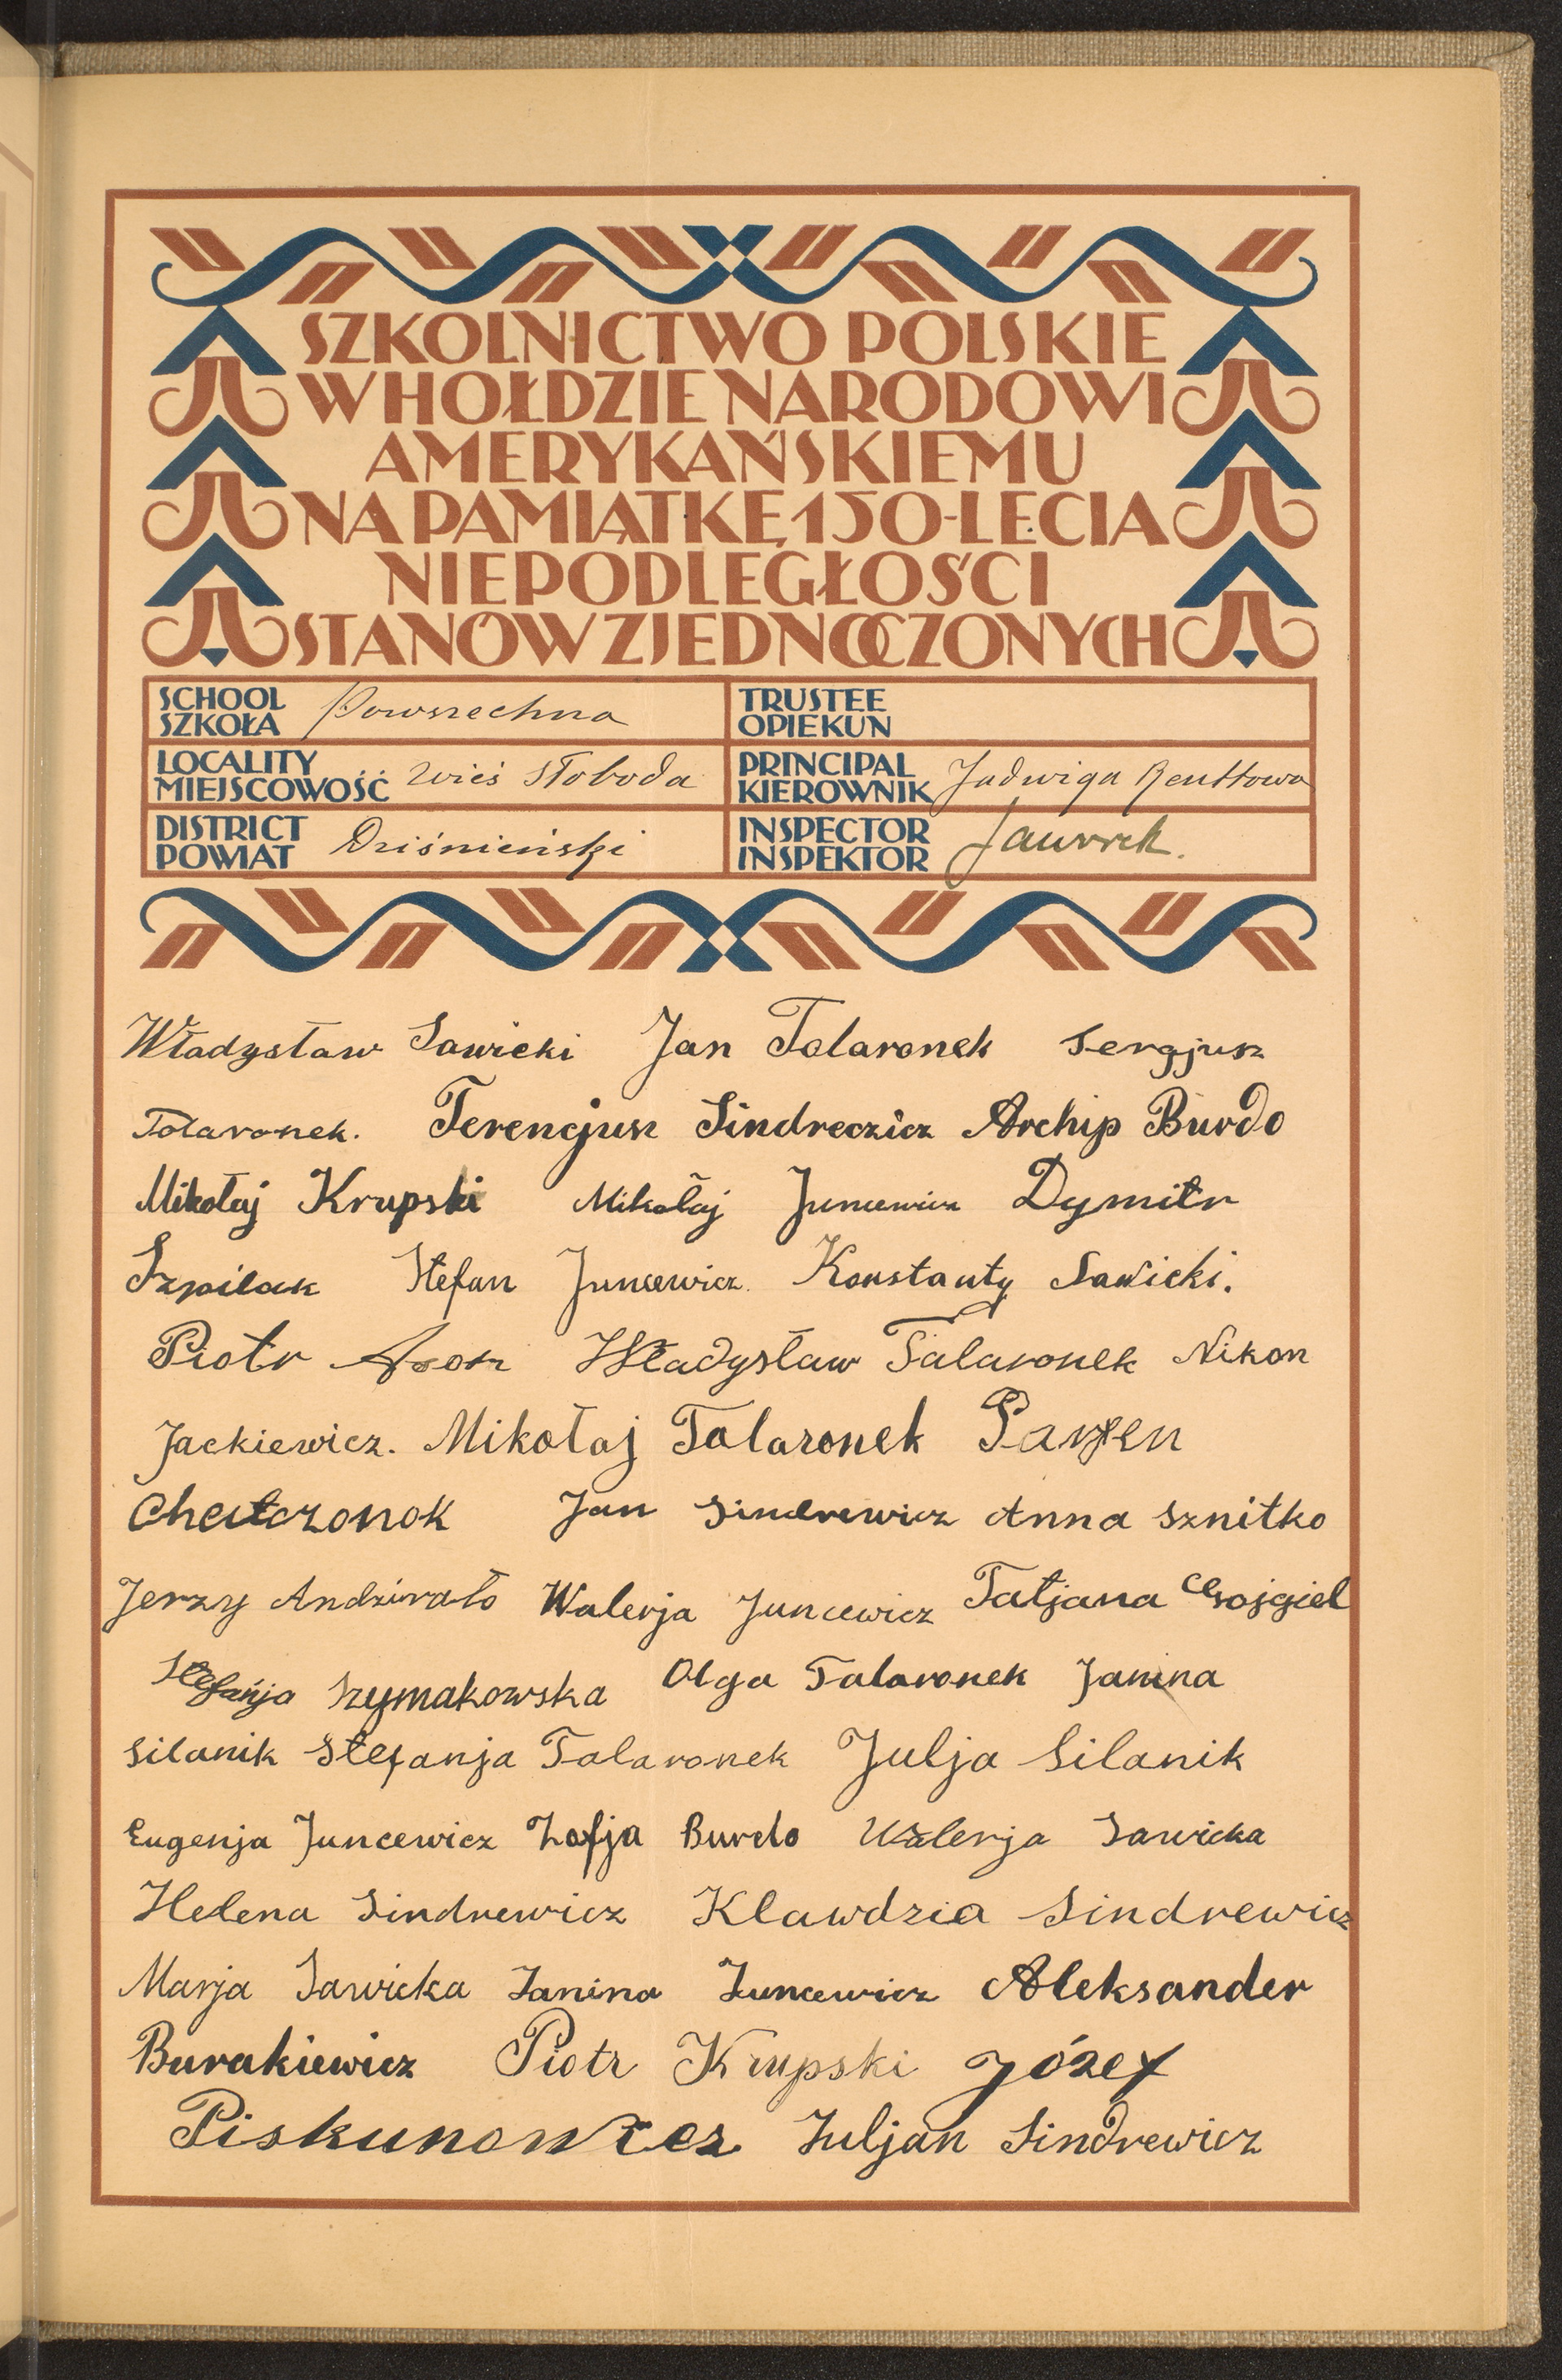 SZKOLNICTWO POLSKIE
W HOŁDZIE NARODOWI
AMERYKAŃSKIEMU
NA PAMIĄTKĘ 150-LECIA
NIEPODLEGŁOŚCI
STANÓW ZJEDNOCZONYCH
SCHOOL
SZKOŁA Powszechna
TRUSTEE
OPIEKUN
LOCALITY
MIEJSCOWOŚĆ wieś Słoboda
PRINCIPAL
KIEROWNIK Jadwiga
DISTRICT
POWIAT Dziśnieński
INSPECTOR
INSPEKTOR
Władysław Sawicki Jan Talaronek Sergjusz
Talaronek. Terencjusz Sindreczicz Archip Burdo
Mikołaj Krupski Mikołaj Juncewicz Dymitr
Szpilak Stefan Juncewicz. Konstanty Sawicki.
Piotr Władysław Talaronek Nikon
Jackiewicz. Mikołaj Talaronek
Jan Sindrewicz Anna Sznitko
Jerzy Andzirało Walerja Juncewicz Tatjana
Stefanja Szymakowska Olga Talaronek Janina
Silanik Stefanja Talaronek Julja Silanik
Eugenja Juncewicz Zofja Burdo Walerja Sawicka
Helena Sindrewicz Klawdzia Sindrewicz
Marja Sawicka Janina Juncewicz Aleksander
Burakiewicz Piotr Krupski Józef
Piskunowicz Juljan Sindrewicz